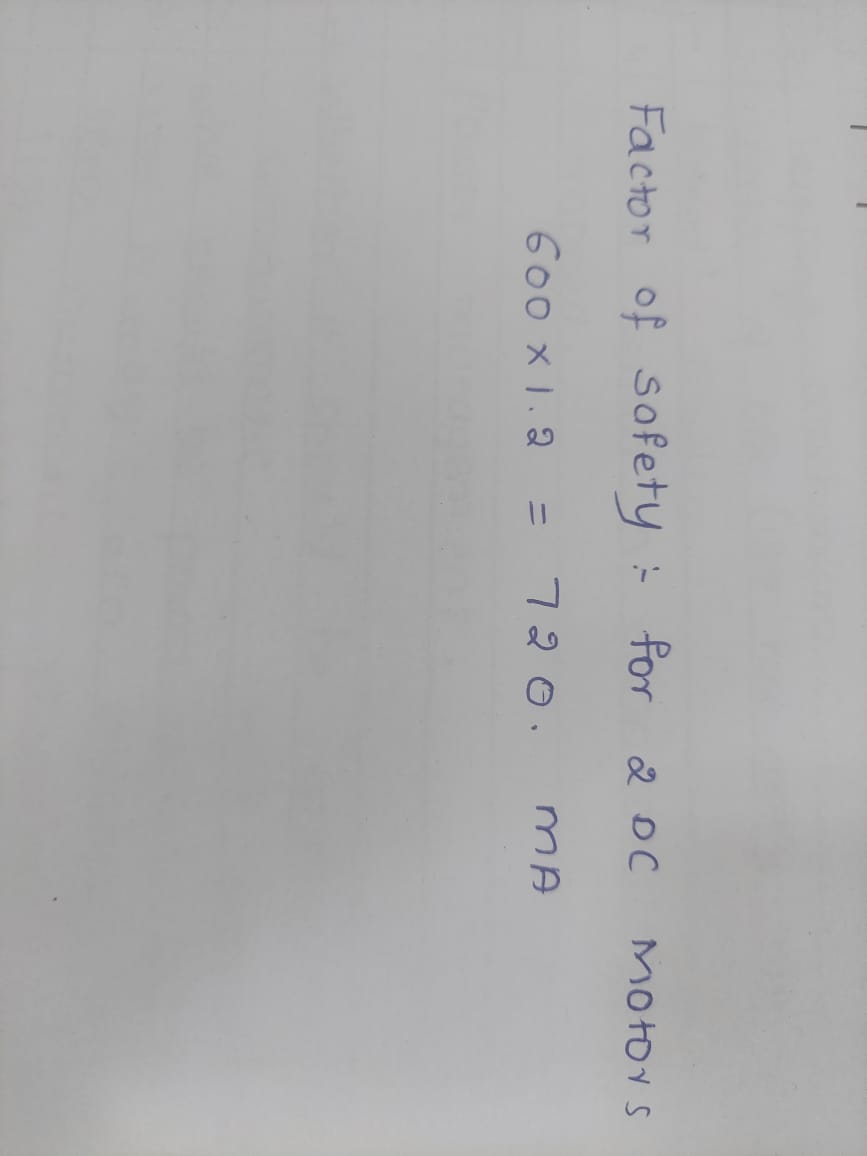 Factor of Safety :- for 2 DC Motors
600 x 1.2 = 720. mA